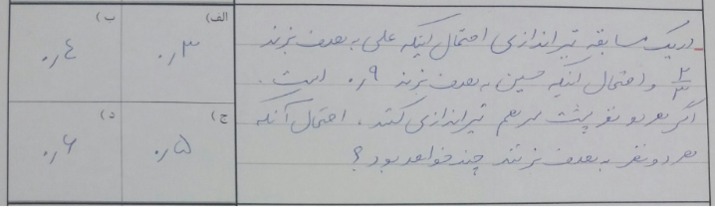 در یک مسابقه تیراندازی احتمال اینکه علی به هدف بزند
۲/۳ و احتمال اینکه حسین به هدف بزند ۰٫۹ است.
اگر هر دو نفر پشت سر هم تیراندازی کنند، احتمال آنکه
هر دو نفر به هدف بزنند چند خواهد بود؟
الف) ۰٫۳
ب) ۰٫۴
ج) ۰٫۵
د) ۰٫۶